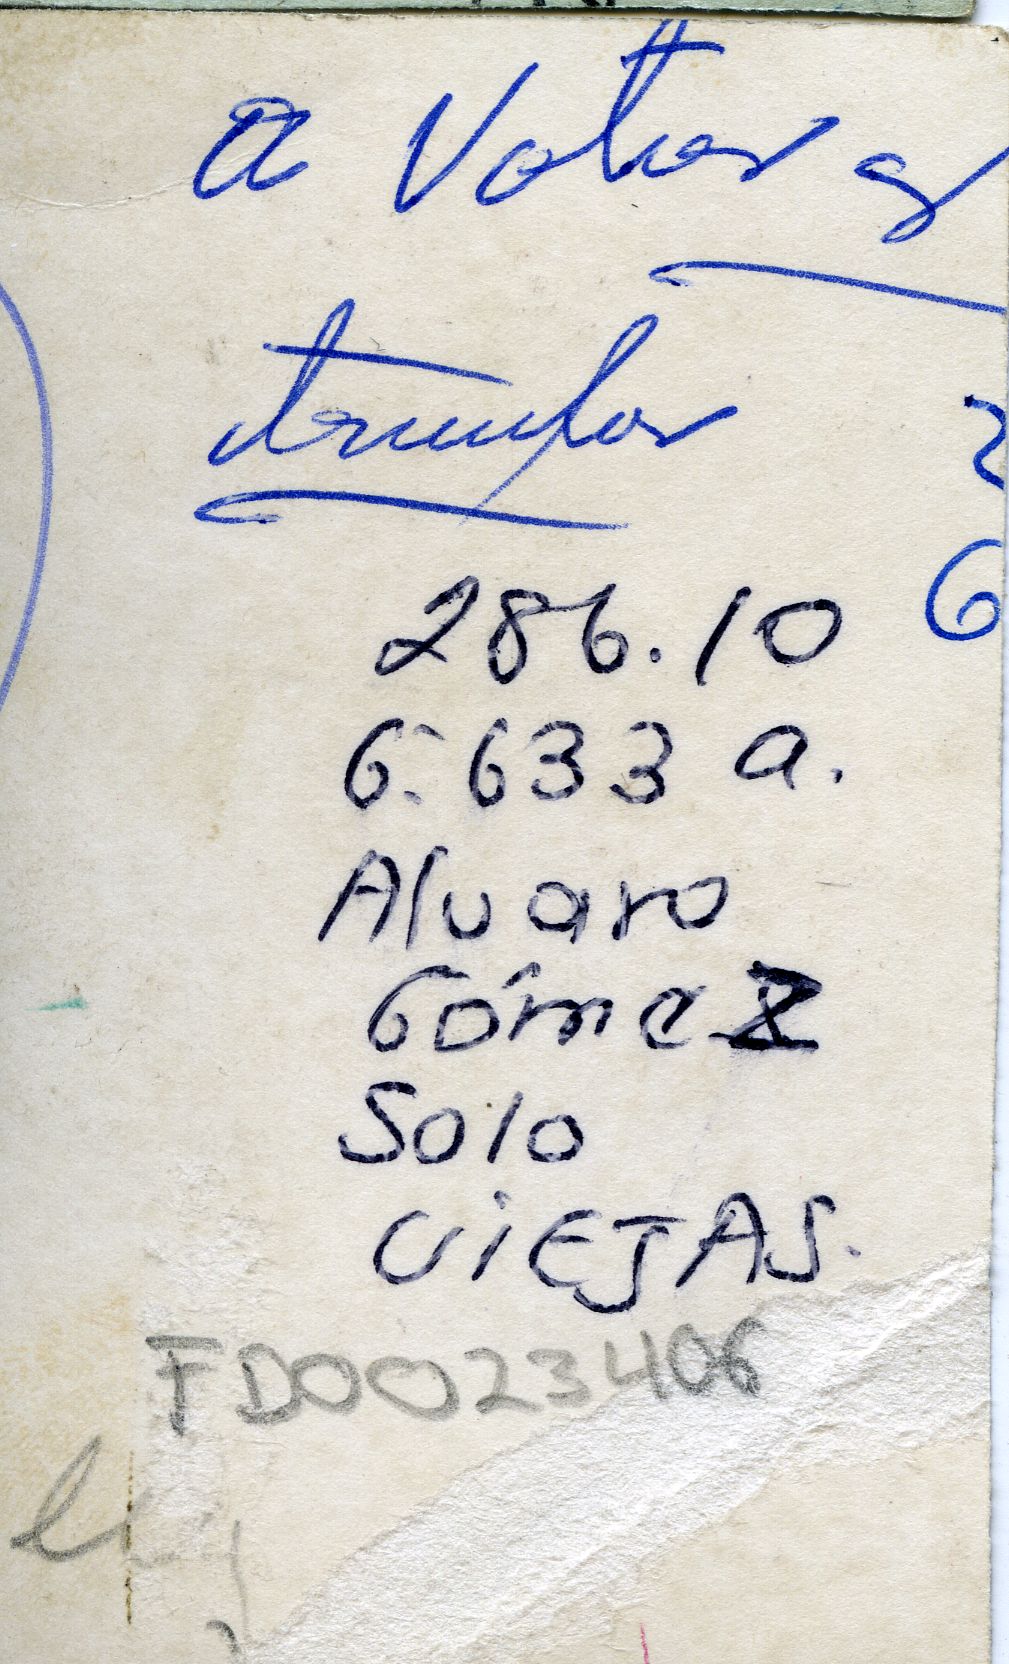 a Votar y
triunfar
2
6
286.10
6.633 a.
Alvaro
Gómez
Solo
ViEJAS.
FD0023406